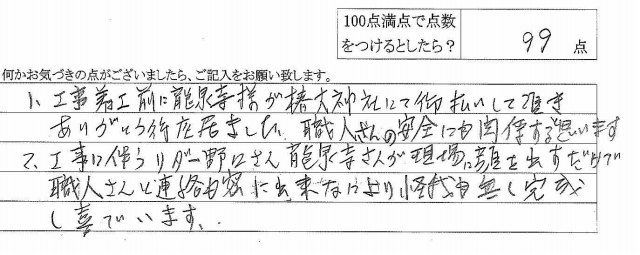 100点満点で点数
をつけるとしたら？ 99 点
何かお気づきの点がございましたら、ご記入をお願い致します。
1、工事着工前に龍泉寺様が椿大神社にて御払いして頂き
ありがとう御座居ました。職人さんの安全にも関係すると思います
2、工事に伴うリダー野口さん 龍泉寺さんが現場に顔を出すだけで
職人さんと連絡も密に出来なにより怪我も無く完成
し喜んでいます。